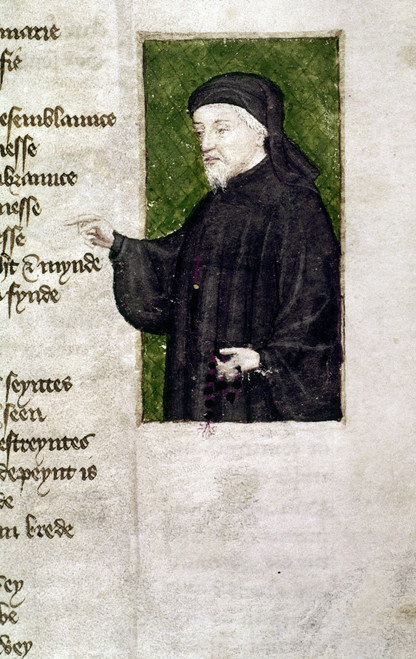 marie
fie
esemblaunce
nesse
mbraunce
nesse
esse
ht & mynde
fynde
seyntes
seen
estreyntes
depeynt is
de
in brede
ey
be
wey